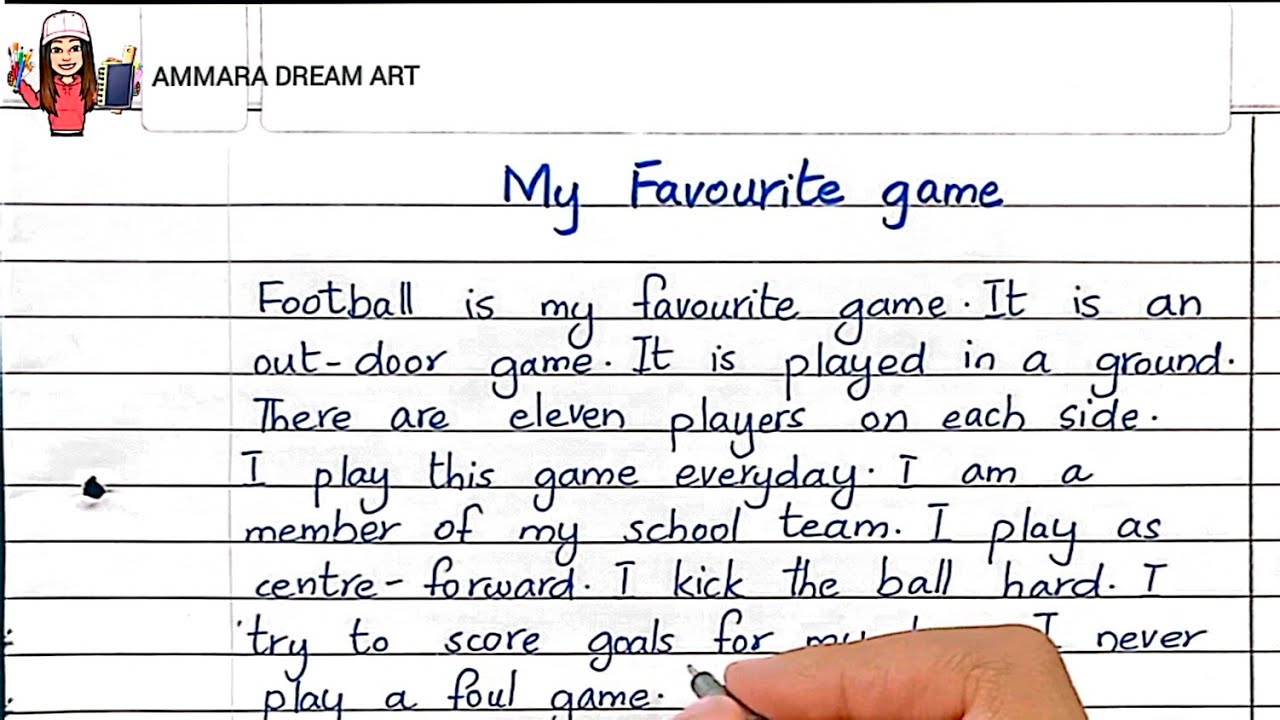 AMMARA DREAM ART
My Favourite game
Football is my favourite game. It is an
out-door game. It is played in a ground.
There are eleven players on each side.
I play this game everyday. I am a
member of my school team. I play as
centre-forward. I kick the ball hard. I
try to score goals for my I never
play a foul game.